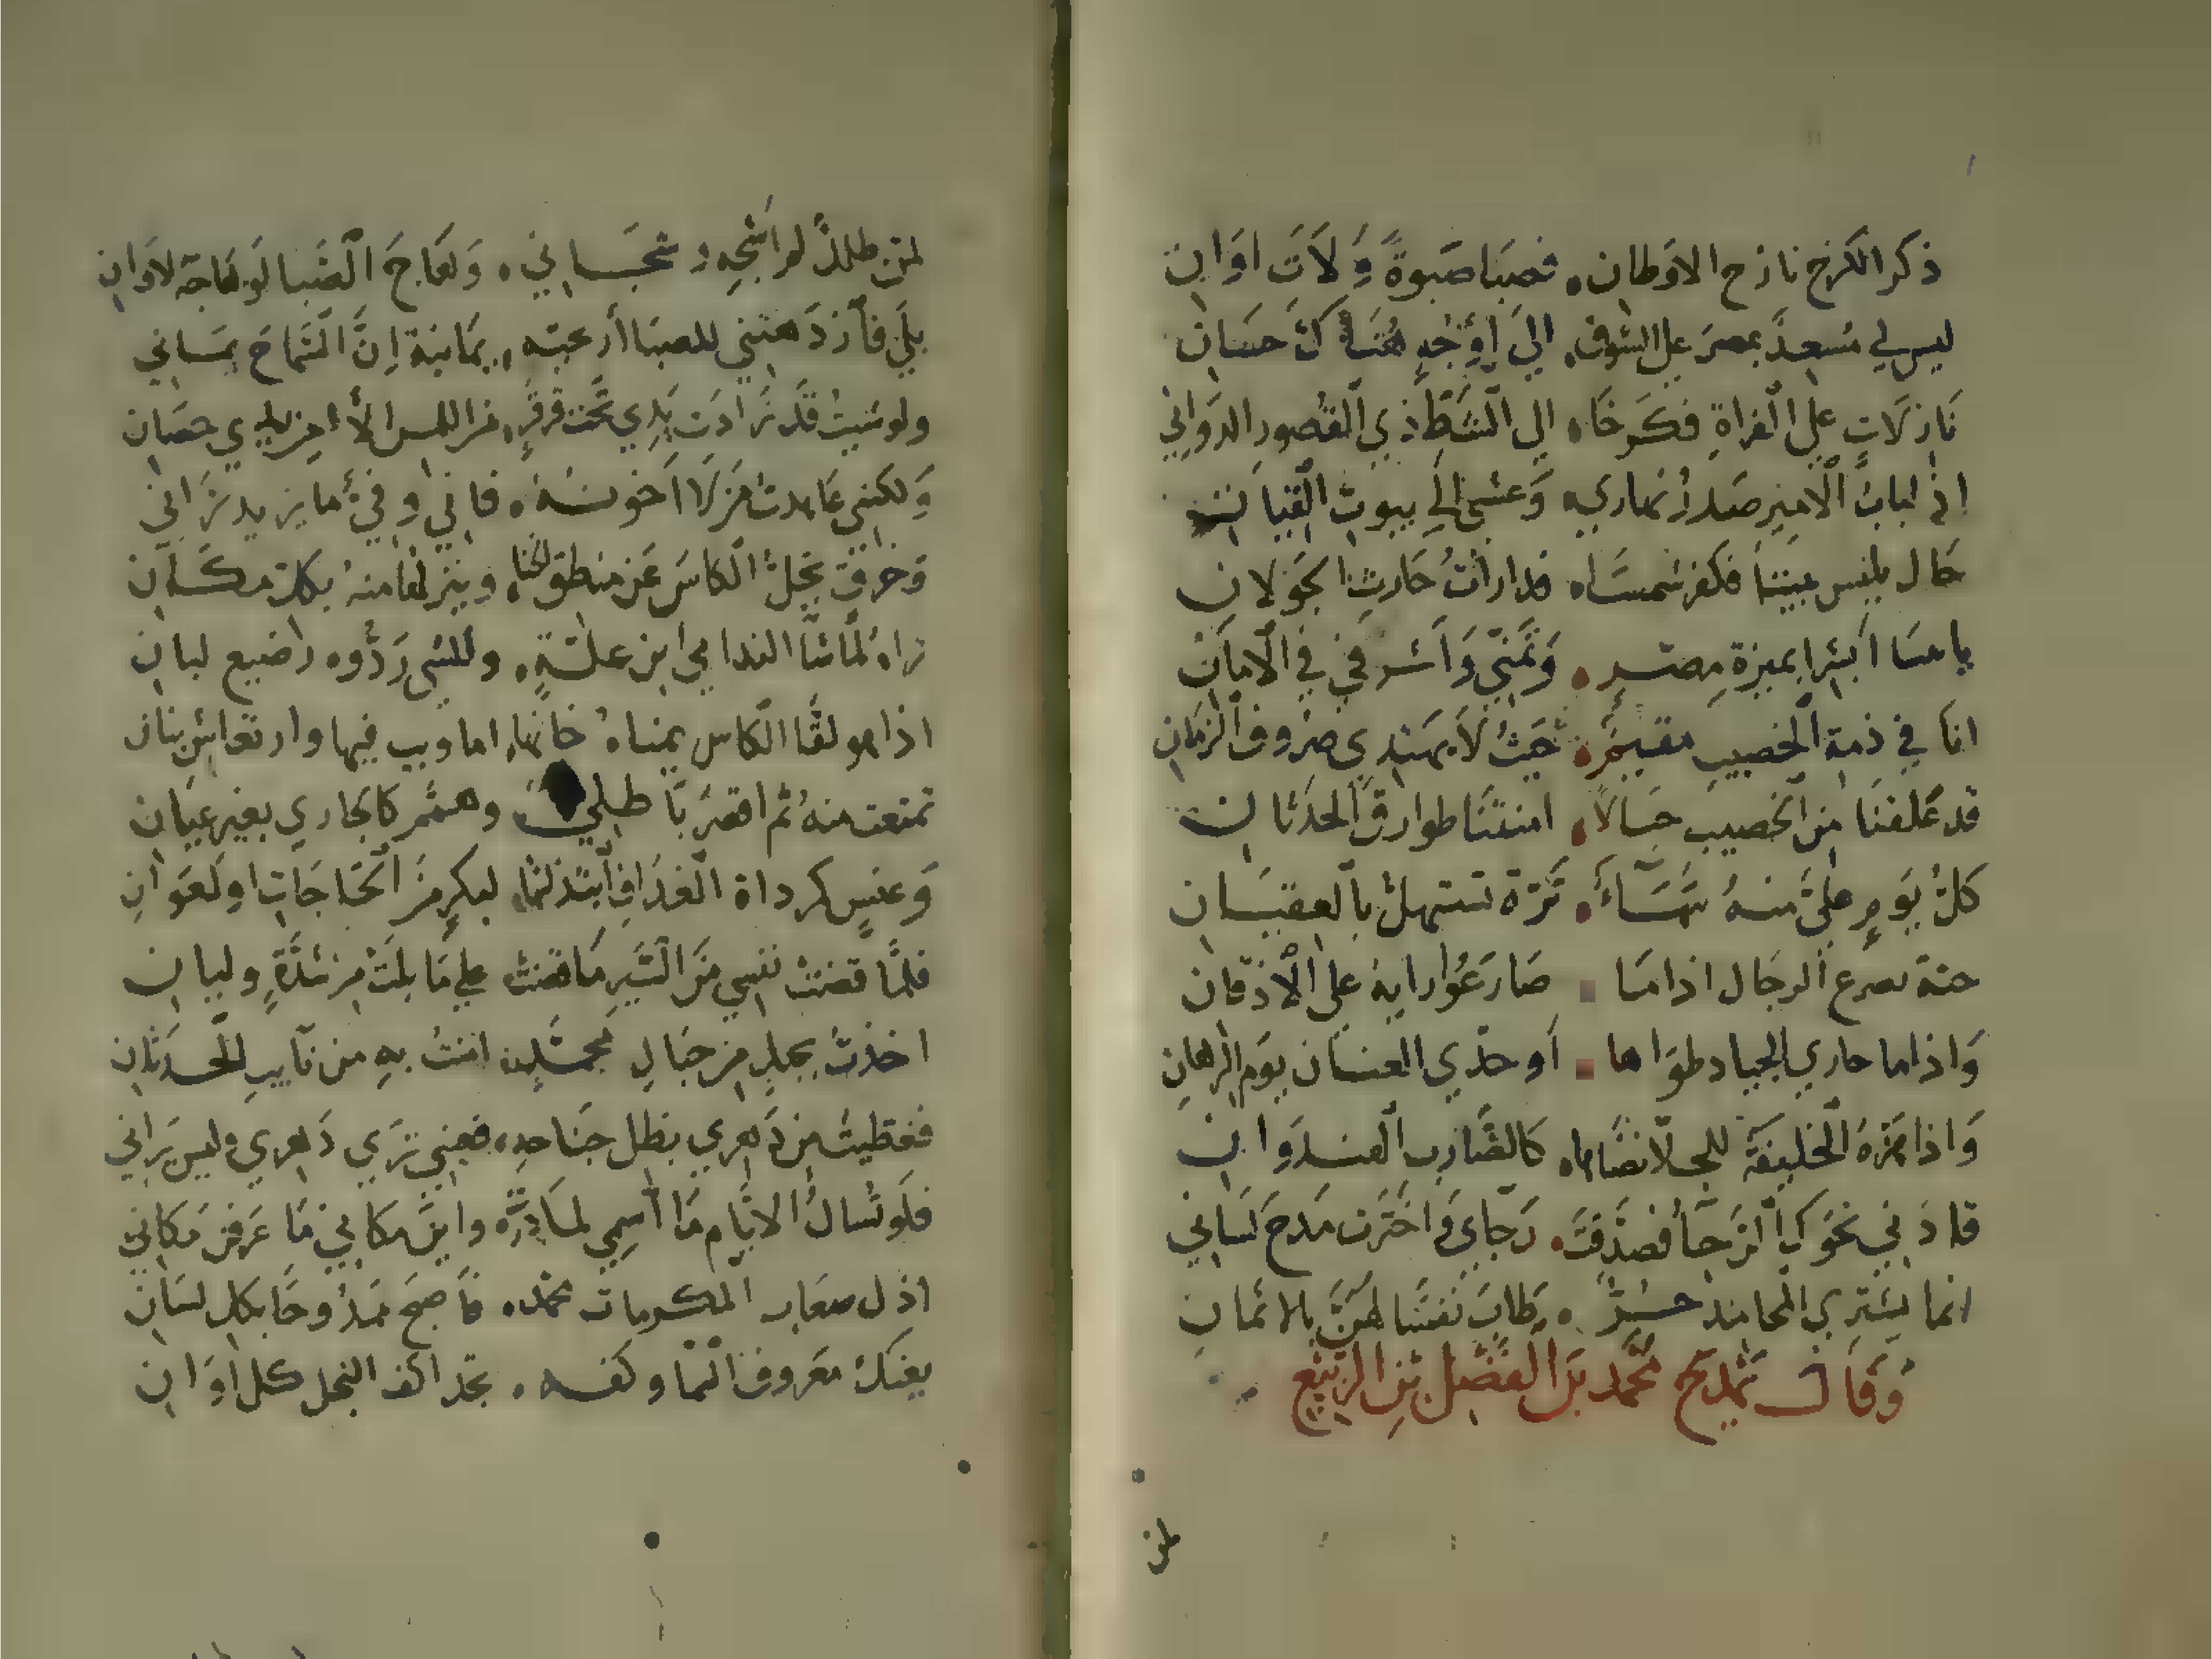 ذكر الكرخ نازح الاوطان . فصبا صبوةً وَلَاتَ اوَانِ
ليس لي مُسعِدٌ بمصرَ على الشوق . الى أَوْجُهٍ هُنَاكَ حسَانِ
نَازلَاتٍ على الفراةِ فكَرخَاه الى الشطّ ذي القصور الدوَاني
اذ لبابِ الامير صَدرُ نهاري ه وَعشيّ الى بيوت القيان
انا في ذمة الخصيب مقيمٌ . حَيثُ لَا يهتدي صُروف الزمان
قد عَلقنَا من الخصيب حبالاً . امنتنَا طوارقَ الحدَثان
كلُّ يَومٍ عليَّ منهُ سَمَاءٌ . ثَرّة تستهلّ بالعقيَان
صَارَعُوا رايهُ على الاذقان
وَاذا ما جاري الجياد طوَاها . أوحدي العنان يوم الرهَانِ
وَاذا هزهُ الخليفَة للجلا نضَاها ه كالضَارب الغندوَان
قادَني نحوَك الرجَأُ فصدّقتَ . رجَاي وَاخترت مَدحَ لسَاني
انما يَشترِي المحامد حُرٌّ . طابَ نفسًا لهنَّ بالاثمان
وَقَال يَمدَح محَمد بن الفَضل بن الربيع
لمن
لمن طللٌ لم اشجِه وشجَاني . وَهَاجَ الصَبا لو هَاجَه لاوَان
بلَى فازدَهتني للصبَا أريحيّه . يمَانية إنَّ السَّمَاحَ يمَاني
ولو شيتُ قَد دَارَت يَدِي تحت قرقرٍ . من اللمس الا من يدي حصَان
وَلكنني عَاهدتُ من لَا اخونُهُ . فاني وفيٌّ ما يزيد يَرَاني
وخرقٍ يجلّ الكاسَ عَن منطق الخنا . وينزلها منهُ بكل مكَان
تراهُ لما سَا الندامى ابن علَّةٍ . وللشي رَدّوه رضيع لبان
اذا هو لقّا الكاس يمناهُ خانها . اماويب فيها وارتعاش بنان
تمتعت منهُ ثم اقصرَ باطلي وصمّم كالجاري بغير عيَان
وَعنسٍ كمرداة القذَاف ابتذلتُها . لبكرٍ من الحَاجَات او لعَوَانِ
فلمَّا قضت نفسي منَ السَّير مَا قضت على مَا بلت من شدَّةٍ وليان
اخذتُ بحبلٍ من حبَالِ محمّدٍ . امنتُ به من نَايبِ الحدثَان
فغطيتُ من دَهري بظل جنَاحهِ . فعيني تَرَي دَهري وليسَ يَرَاني
فلو تُسألُ الايَّام مَا اسمي لمَا دَرَت وَاين مكاني مَا عَرفنَ مَكاني
اذل صعَاب المكرمات محمّد . فأصبحَ ممدُوحًا بكل لسَان
يغبك معَروف السَّما وكفه . تجد اكف النجل كل اوَان